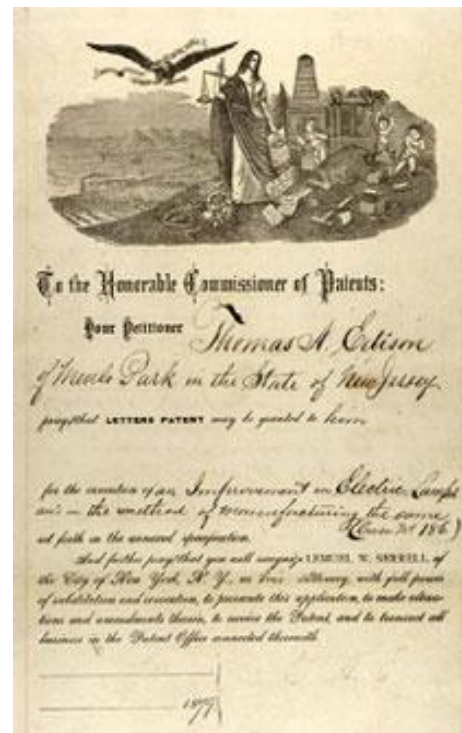 To the Honorable Commissioner of Patents:
Your Petitioner Thomas A. Edison
of Menlo Park in the State of New Jersey
prays that LETTERS PATENT may be granted to him
for the invention of an Improvement in Electric Lamps
and in the method of manufacturing the same
(Case No 186)
set forth in the annexed specification.
And further prays that you will recognize LEMUEL W. SERRELL, of
the City of New York, N. Y., as his Attorney, with full power
of substitution and revocation, to prosecute this application, to make altera-
tions and amendments therein, to receive the Patent, and to transact all
business in the Patent Office connected therewith